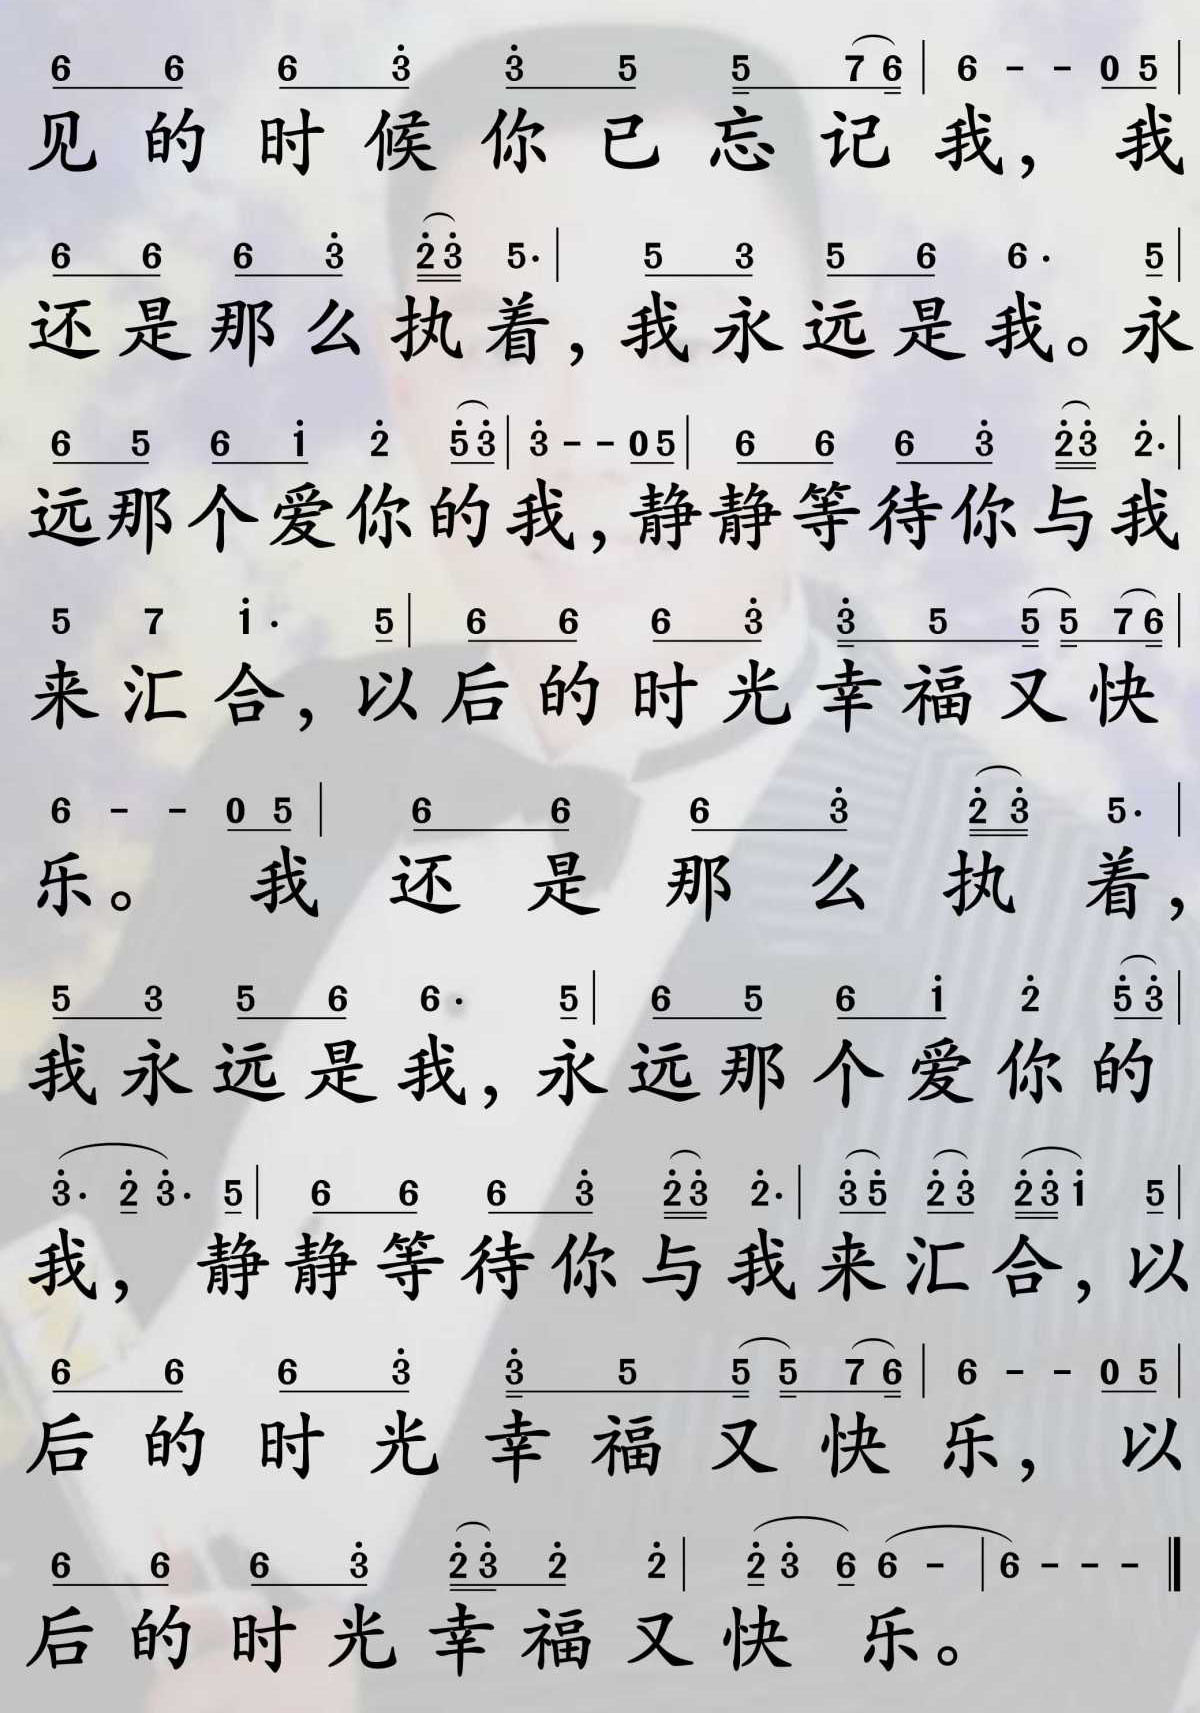 6 6 6 3̇ 3̇ 5 5 7 6 | 6 - - 0 5 |
见的时候你已忘记我，我
6 6 6 3̇ 2̇ 3̇ 5· | 5 3 5 6 6· 5 |
还是那么执着，我永远是我。永
6 5 6 1̇ 2̇ 5̇ 3̇ | 3̇ - - 0 5 | 6 6 6 3̇ 2̇ 3̇ 2̇· |
远那个爱你的我，静静等待你与我
5 7 1̇· 5 | 6 6 6 3̇ 3̇ 5 5 5 7 6 |
来汇合，以后的时光幸福又快
6 - - 0 5 | 6 6 6 3̇ 2̇ 3̇ 5· |
乐。我还是那么执着，
5 3 5 6 6· 5 | 6 5 6 1̇ 2̇ 5̇ 3̇ |
我永远是我，永远那个爱你的
3̇· 2̇ 3̇· 5 | 6 6 6 3̇ 2̇ 3̇ 2̇· | 3̇ 5̇ 2̇ 3̇ 2̇ 3̇ 1̇ 5 |
我，静静等待你与我来汇合，以
6 6 6 3̇ 3̇ 5 5 5 7 6 | 6 - - 0 5 |
后的时光幸福又快乐，以
6 6 6 3̇ 2̇ 3̇ 2̇ 2̇ | 2̇ 3̇ 6 6 - | 6 - - - ‖
后的时光幸福又快乐。